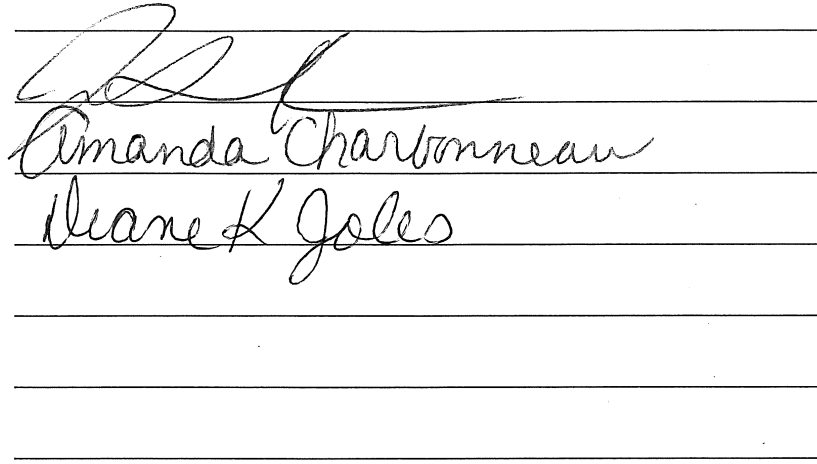 Amanda Charbonneau
Diane K Joles